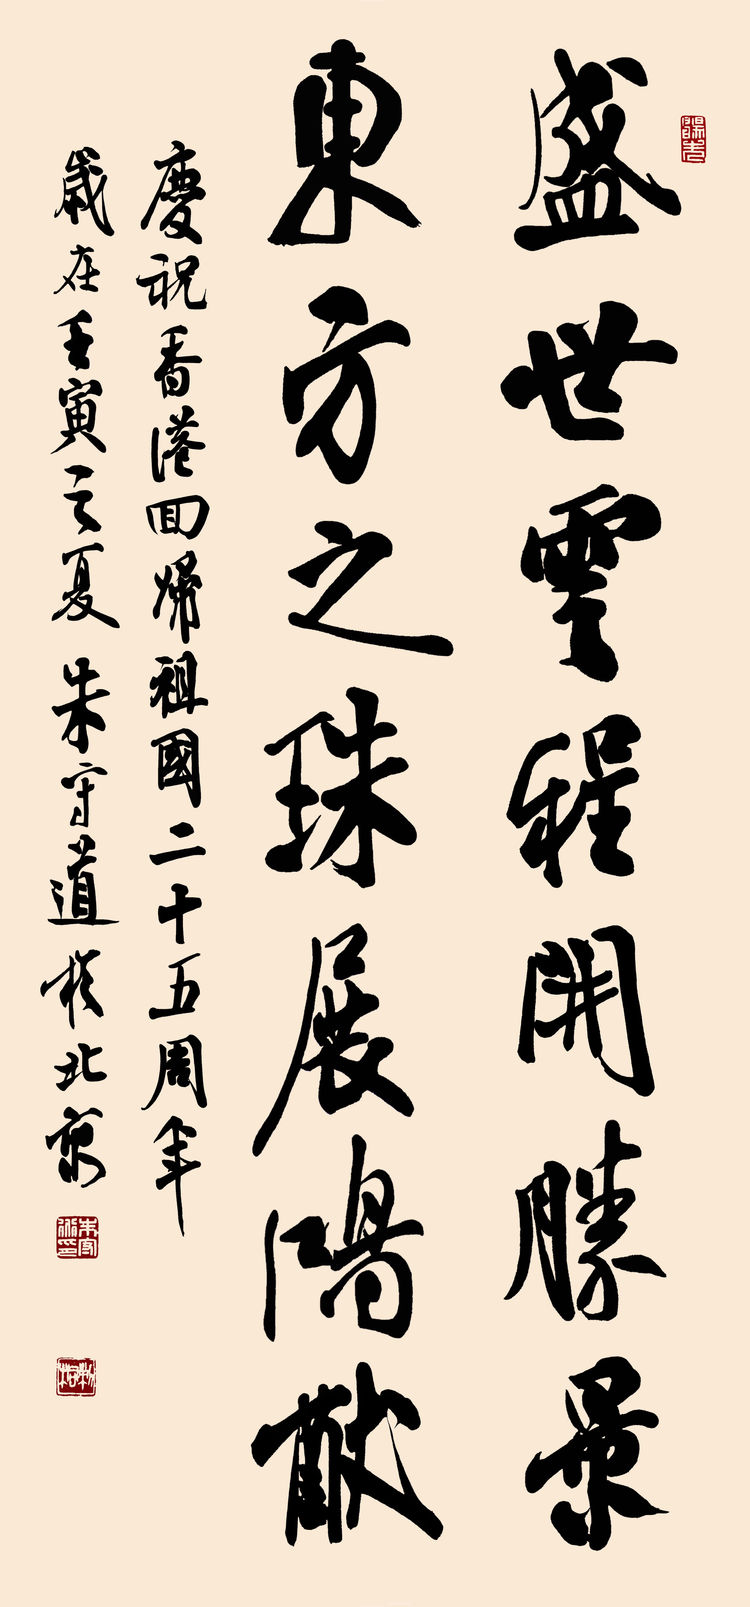 盛世雲程開勝景
東方之珠展鴻猷
慶祝香港回歸祖國二十五周年
歲在壬寅之夏朱守道於北京